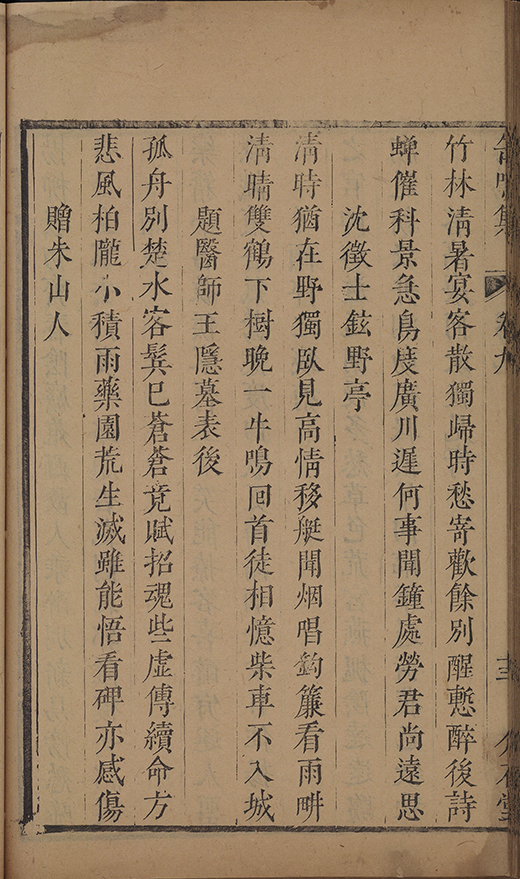 竹林淸暑宴客散獨歸時愁寄歡餘別醒慙醉後詩
蟬催科景急鳥度廣川遲何事聞鐘處勞君尚遠思
沈徵士鉉野亭
淸時猶在野獨臥見高情移艇聞烟唱鉤簾看雨畊
淸晴雙鶴下樹晚一牛鳴回首徒相憶柴車不入城
題醫師王隱墓表後
孤舟別楚水客鬂巳蒼蒼竟賦招魂些虛傳續命方
悲風柏隴小積雨藥園荒生滅雖能悟看碑亦感傷
贈朱山人
卷九
十三